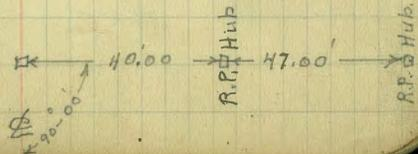 40.00
R.P. Hub
47.00'
R.P. Hub.
90°-00'